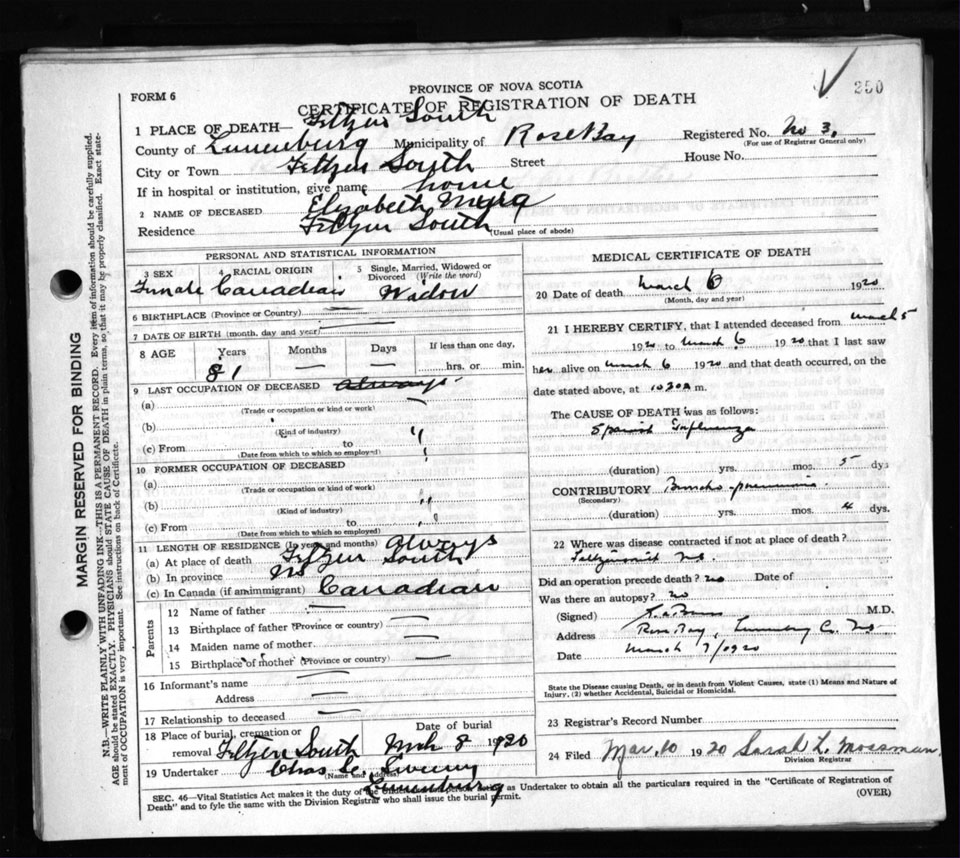 250
PROVINCE OF NOVA SCOTIA
FORM 6
CERTIFICATE OF REGISTRATION OF DEATH
1 PLACE OF DEATH— Feltzen South
County of Lunenburg Municipality of Rose Bay Registered No. No 3.
(For use of Registrar General only)
City or Town Feltzen South Street House No.
If in hospital or institution, give name home
2 NAME OF DECEASED Elizabeth Myra
Residence Feltzen South (Usual place of abode)
PERSONAL AND STATISTICAL INFORMATION
3 SEX 4 RACIAL ORIGIN 5 Single, Married, Widowed or Divorced (Write the word)
Female Canadian Widow
6 BIRTHPLACE (Province or Country)
7 DATE OF BIRTH (month, day and year)
8 AGE Years Months Days If less than one day,
81 hrs. or min.
9 LAST OCCUPATION OF DECEASED always
(a)
(Trade or occupation or kind of work)
(b)
(Kind of industry)
(c) From to
(Date from which to which so employed)
10 FORMER OCCUPATION OF DECEASED
(a)
(Trade or occupation or kind of work)
(b)
(Kind of industry)
(c) From to
(Date from which to which so employed)
11 LENGTH OF RESIDENCE (in years and months) always
(a) At place of death Feltzen South
(b) In province NS
(c) In Canada (if an immigrant) Canadian
Parents
12 Name of father
13 Birthplace of father (Province or country)
14 Maiden name of mother
15 Birthplace of mother (Province or country)
16 Informant's name
Address
17 Relationship to deceased
18 Place of burial, cremation or removal Date of burial
Feltzen South Mch 8 1920
19 Undertaker Chas
(Name and Address)
Lunenburg
MEDICAL CERTIFICATE OF DEATH
20 Date of death March 6 1920
(Month, day and year)
21 I HEREBY CERTIFY, that I attended deceased from March 5
1920 to March 6 1920 that I last saw
her alive on March 6 1920 and that death occurred, on the
date stated above, at 1030 A m.
The CAUSE OF DEATH was as follows:
Spanish Influenza
(duration) yrs. mos. 5 dys
CONTRIBUTORY Broncho-pneumonia
(Secondary)
(duration) yrs. mos. 4 dys.
22 Where was disease contracted if not at place of death?
NS.
Did an operation precede death? no Date of
Was there an autopsy? no
(Signed) M.D.
Address Rose Bay, Lunenburg Co. NS
Date March 7/1920
State the Disease causing Death, or in death from Violent Causes, state (1) Means and Nature of
Injury, (2) whether Accidental, Suicidal or Homicidal.
23 Registrar's Record Number
24 Filed Mar. 10 1920 Sarah L. Mossman
Division Registrar
SEC. 46—Vital Statistics Act makes it the duty of the Undertaker to obtain all the particulars required in the "Certificate of Registration of
Death" and to fyle the same with the Division Registrar who shall issue the burial permit. (OVER)
MARGIN RESERVED FOR BINDING
N.B.—WRITE PLAINLY WITH UNFADING INK—THIS IS A PERMANENT RECORD. Every item of information should be carefully supplied.
AGE should be stated EXACTLY. PHYSICIANS should STATE CAUSE OF DEATH in plain terms, so that it may be properly classified. Exact state-
ment of OCCUPATION is very important. See instructions on back of Certificate.